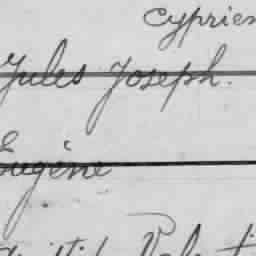 Cyprien
Jules Joseph.
Eugène